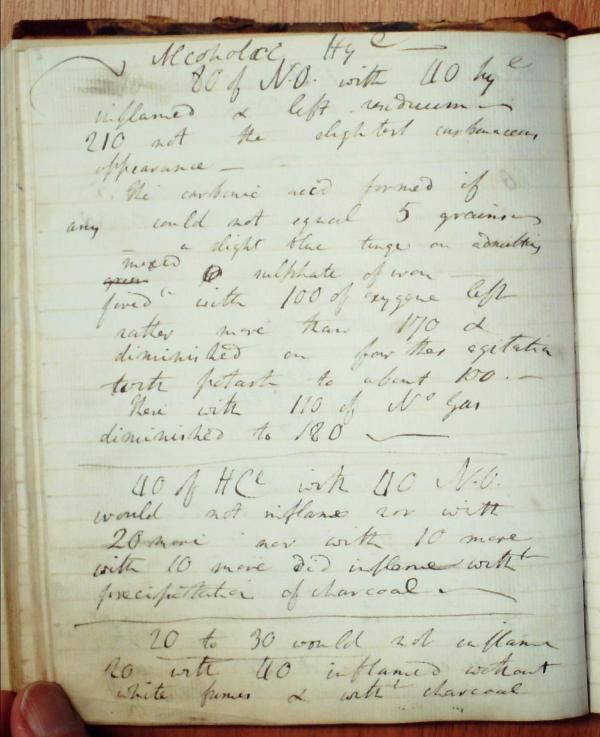 Alcoholic Hy e
80 of N.O. with 40 hy e
inflamed & left residuum
210 not the slightest carbonaceous
appearance —
The carbonic acid formed if
any could not equal 5 grains
— a slight blue tinge on admitting
mixed
sulphate of iron —
fired with 100 of oxygene left
rather more than 170 &
diminished on farther agitation
with potash to about 100. —
These with 110 of N o Gas
diminished to 180
40 of HC e with 40 N.O.
would not inflame nor with
20 more nor with 10 more
with 10 more did inflame with t
precipitation of charcoal
20 to 30 would not inflame
20 with 40 inflamed without
white fumes & with t charcoal